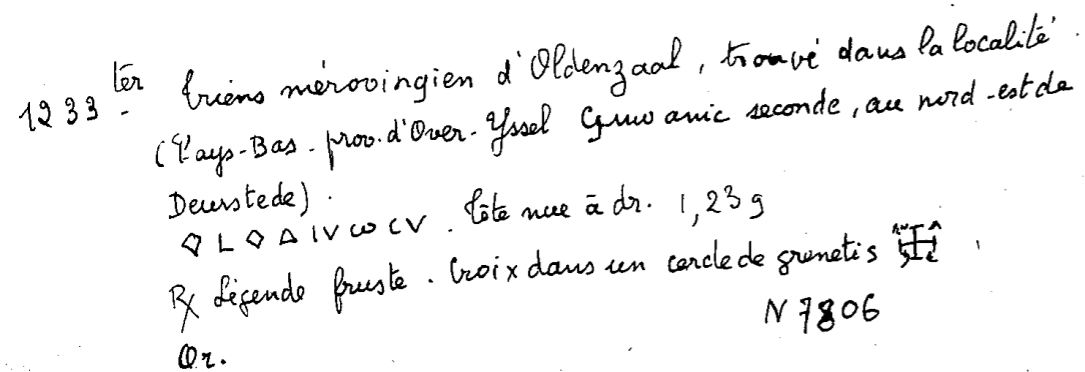 1233 ter triens mérovingien d'Oldenzaal, trouvé dans la localité
(Pays-Bas. prov. d'Over-Yssel Germanie seconde, au nord-est de
Deurstede).
◊ L ◊ Δ I V ω C V. Tête nue à dr. 1,23 g
℞ Légende fruste. Croix dans un cercle de grenetis
N 7806
Or.